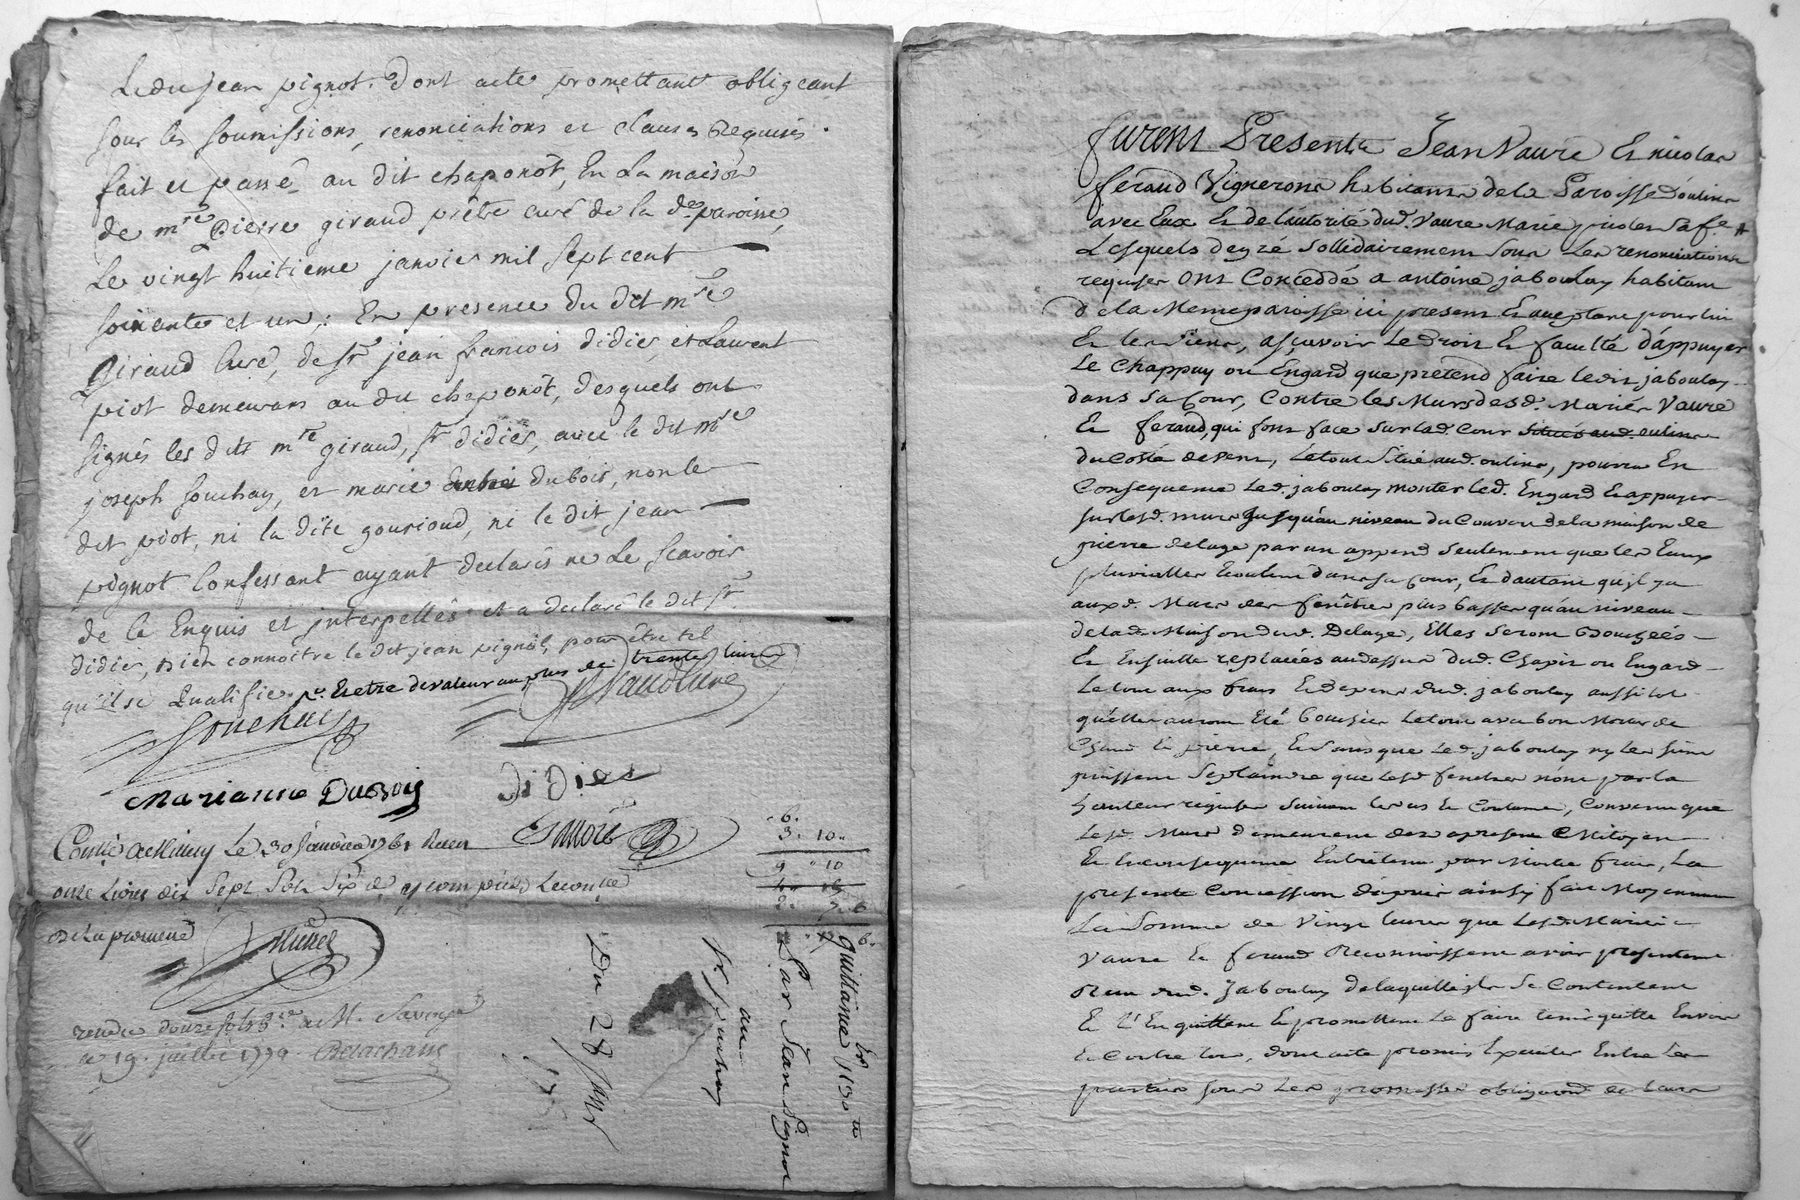 Ledit jean pignot. Dont acte promettant obligeant
sous les soumissions, renonciations et clauses Requises.
fait et passé au dit chaponôt, En La maison
de mre Pierre giraud prêtre curé de la de paroisse,
Le vingt huitieme janvier mil sept cent
soixante et un, En presence du dit mre
Giraud Curé, de Sr jean francois didier, et Laurent
piot demeurans au dit chaponôt, desquels ont
signés les dits mre giraud, Sr didier, avec le dit mre
joseph souchay, et marie dubois, non le
dit piot, ni la dite gourioud, ni le dit jean
pignot Confessant ayant declarés ne Le scavoir
de ce Enquis et interpellés et a declaré le dit Sr
didier, bien connoitre le dit jean pignot, pour être tel
qu'il se Qualifie. pr Être de valeur au plus de trente livres
Souchay
Marianne DuBois
DiDier
Conté a le 30 Janvier 1761 Reçu
onze Livres dix Sept Sols Six d y compris Le controlle
de La premiere
6.
3. 10.
9 " 10
2. 7. 6
rendu douze sols a M.
ce 19. juillet 1779. Delachans
Du 28 Janvr
Sr Souchay
au
Par Jean Pignot
Quittance
furent Presents Jean Vaure Et nicolas
feraud Vignerons habitans de la Paroisse d'oulins
avec Eux Et de l'autorité dud. Vaure Marie sa fe
Lesquels de gré Sollidairement Sous Les renonciations
requises Ont Conceddé a antoine jaboulay habitant
de la Meme paroisse ici present Et acceptant pour lui
Et les Siens, asçavoir Le droit Et faculté d'appuyer
Le Chappuy ou Engard que prétend faire ledit jaboulay
dans Sa Cour, Contre les Murs desd. Mariés Vaure
Et feraud, qui font face sur lad. Cour situés aud. oulins
du Costé de vent, Le tout Situé aud. oulins, pourra En
Consequence Led. jaboulay monter led. Engard Et appuyer
sur lesd. murs Jusqu'au niveau du Couvert de la maison de
pierre delage par un append seulement que les Eaux
pluvialles Coulent dans sa Cour, Et d'autant qu'il y a
auxd. Murs des fenêtres plus basses qu'au niveau
de lad. Maison dud. Delage, Elles seront Bouchées
Et Ensuitte replacées au dessus dud. Chapit ou Engard
Le tout aux frais Et depens dud. jaboulay aussitot
qu'elles auront Eté bouchées Le tout avec bon Mortier de
Chaud Et pierre, Et Sans que Led. jaboulay ny les siens
puissent Se plaindre que lesd. fenetres n'ont pas la
hauteur requise Suivant les us Et Coutume, Convenu que
Lesd. Murs demeurent des a present Mitoyens
Et En consequence Entretenu par Moitié frais, La
presente Concession ainsy fait Moyennant
La Somme de Vingt livres que Lesd. Mariés
Vaure Et feraud Reconnoissent avoir presentement
Reçu dud. Jaboulay de laquelle ils Se Contentent
Et L'En quittent Et promettent La faire tenir quitte Envers
Et Contre tous, dont acte promis Executer Entre Les
parties Sous Les promesses obligations de leurs